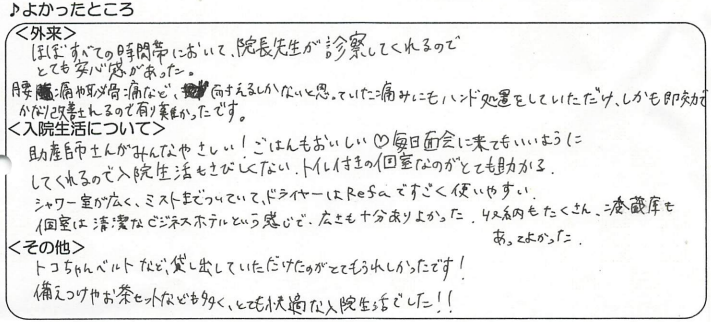 ♪よかったところ
<外来>
ほぼすべての時間帯において、院長先生が診察してくれるので
とても安心感があった。
腰痛や恥骨痛など、耐えるしかないと思っていた痛みにもハンド処置をしていただけ、しかも即効で
かなり改善されるので有り難かったです。
<入院生活について>
助産師さんがみんなやさしい！ごはんもおいしい♡毎日面会に来てもいいように
してくれるので入院生活もさびしくない。トイレ付きの個室なのがとても助かる。
シャワー室が広く、ミストまでついていて、ドライヤーはRefaですごく使いやすい。
個室は清潔なビジネスホテルという感じで、広さも十分ありよかった。収納もたくさん、冷蔵庫も
あってよかった。
<その他>
トコちゃんベルトなど、貸し出していただけたのがとてもうれしかったです！
備えつけやお茶セットなども多く、とても快適な入院生活でした！！